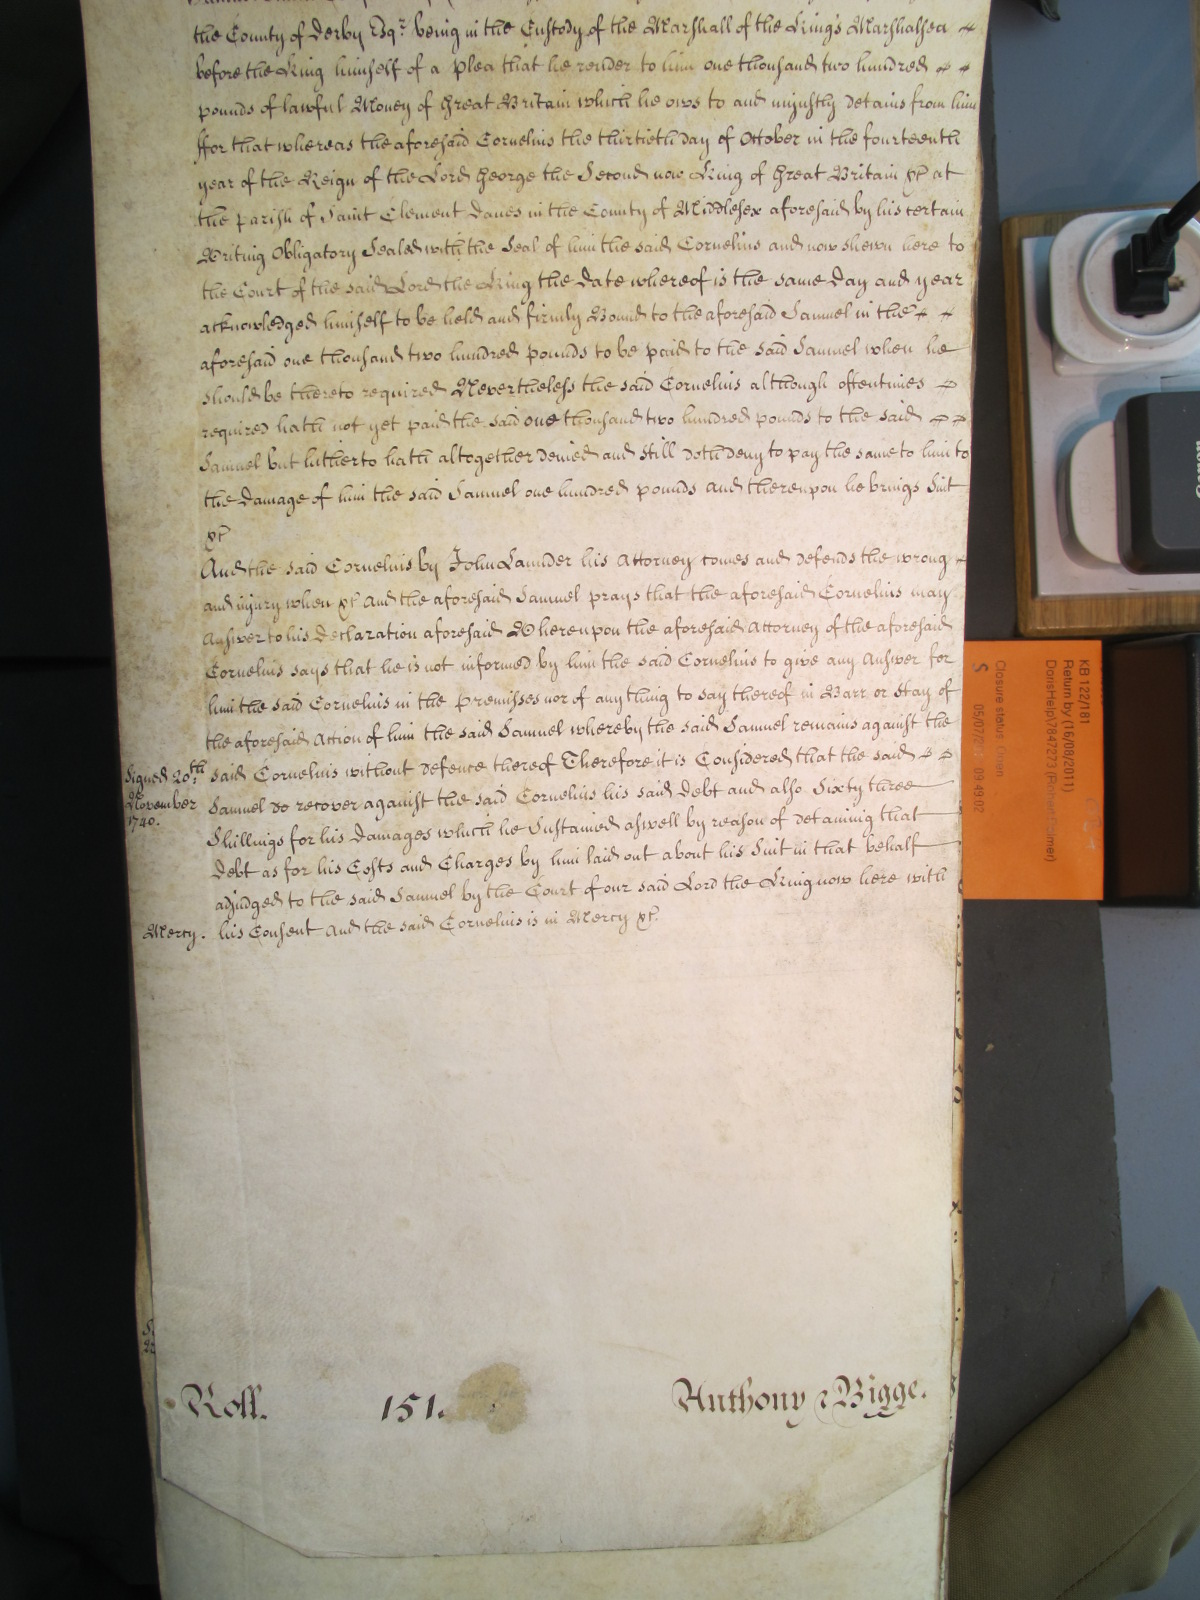 the County of Derby Esqr. being in the Custody of the Marshall of the Kings Marshalsea
before the King himself of a Plea that he render to him one thousand two hundred
pounds of lawful Money of Great Britain which he ows to and unjustly detains from him
ffor that whereas the aforesaid Cornelius the thirtieth day of October in the fourteenth
year of the Reign of the Lord George the Second now King of Great Britain &c at
the parish of Saint Clement Danes in the County of Middlesex aforesaid by his certain
Writing Obligatory Sealed with the Seal of him the said Cornelius and now shewn here to
the Court of the said Lord the King the Date whereof is the same Day and year
acknowledged himself to be held and firmly Bound to the aforesaid Samuel in the
aforesaid one thousand two hundred pounds to be paid to the said Samuel when he
should be thereto required Nevertheless the said Cornelius although oftentimes
required hath not yet paid the said one thousand two hundred pounds to the said
Samuel but hitherto hath altogether denied and still doth deny to pay the same to him to
the Damage of him the said Samuel one hundred pounds and thereupon he brings Suit
&c
And the said Cornelius by John Launder his Attorney comes and defends the wrong
and injury when &c And the aforesaid Samuel prays that the aforesaid Cornelius may
Answer to his Declaration aforesaid Whereupon the aforesaid Attorney of the aforesaid
Cornelius says that he is not informed by him the said Cornelius to give any Answer for
him the said Cornelius in the Premisses nor of any thing to say thereof in Barr or Stay of
the aforesaid Action of him the said Samuel whereby the said Samuel remains against the
Signed 20th November 1740.
said Cornelius without defence thereof Therefore it is Considered that the said
Samuel do recover against the said Cornelius his said Debt and also Sixty three
Shillings for his Damages which he Sustained aswell by reason of detaining that
Debt as for his Costs and Charges by him laid out about his Suit in that behalf
adjudged to the said Samuel by the Court of our said Lord the King now here with
Mercy. his Consent And the said Cornelius is in Mercy &c.
Roll. 151. Anthony & Bigge.
KB 122/181
Return by (16/08/2011)
DorisHelp\7847273 (Robert Palmer)
Closure status: Open
S 05/07/2 09:49:02
Canon